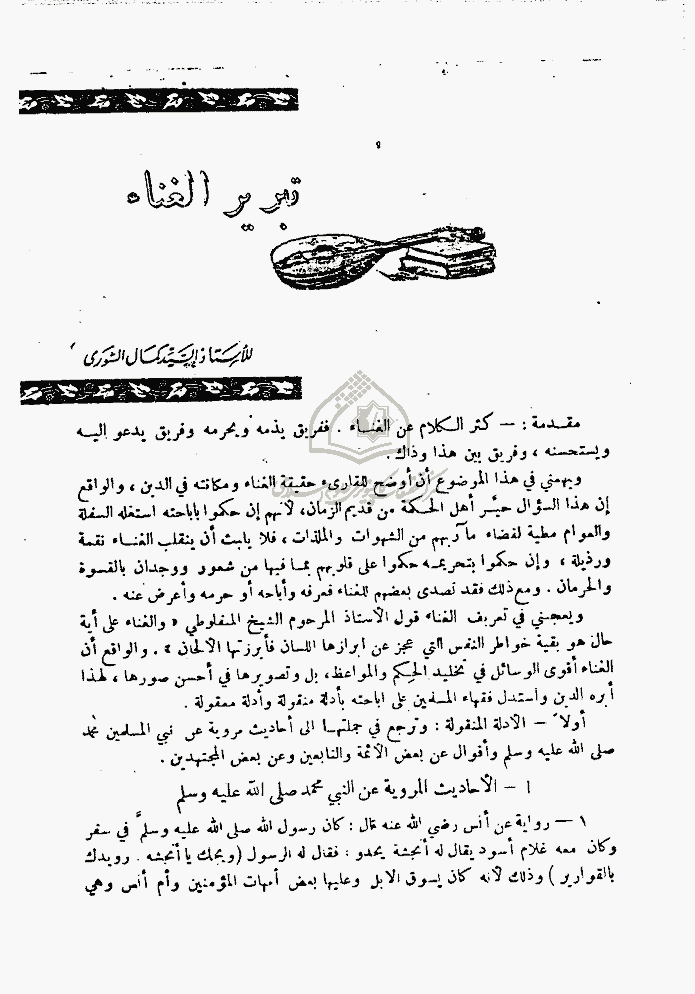 تبرير الغناء
للأستاذ السيد كمال الشورى
مقدمة : — كثر الكلام عن الغناء . ففريق يذمه ويحرمه وفريق يدعو اليه
ويستحسنه ، وفريق بين هذا وذاك .
ويهمني في هذا الموضوع أن أوضح للقارىء حقيقة الغناء ومكانته في الدين ، والواقع
إن هذا السؤال حيَّر أهل الحكمة من قديم الزمان، لأنهم إن حكموا باباحته استغله السفلة
والعوام مطية لقضاء مآربهم من الشهوات والملذات ، فلا يلبث أن ينقلب الغناء نقمة
ورذيلة ، وإن حكموا بتحريمه حكموا على قلوبهم بما فيها من شعور ووجدان بالقسوة
والحرمان . ومع ذلك فقد تصدى بعضهم للغناء فعرفه وأباحه أو حرمه وأعرض عنه .
ويعجبني في تعريف الغناء قول الأستاذ المرحوم الشيخ المنفلوطي « والغناء على أية
حال هو بقية خواطر النفس التي عجز عن ابرازها اللسان فأبرزتها الألحان » . والواقع أن
الغناء أقوى الوسائل في تخليد الحِكم والمواعظ، بل وتصويرها في أحسن صورها ، لهذا
أبره الدين واستدل فقهاء المسلمين على اباحته بأدلة منقولة وأدلة معقولة .
أولاً — الأدلة المنقولة : وترجع في جملتها الى أحاديث مروية عن نبي المسلمين محمد
صلى الله عليه وسلم وأقوال عن بعض الأئمة والتابعين وعن بعض المجتهدين .
ا — الأحاديث المروية عن النبي محمد صلى الله عليه وسلم
١ — رواية عن أنس رضي الله عنه قال : كان رسول الله صلى الله عليه وسلم في سفر
وكان معه غلام أسود يقال له أنجشة يحدو : فقال له الرسول (ويحك يا أنجشه . رويدك
بالقوارير ) وذلك لأنه كان يسوق الابل وعليها بعض أمهات المؤمنين وأم أنس وهي